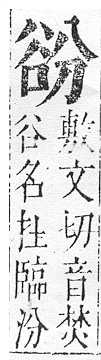 敷文切音焚
谷名在臨汾